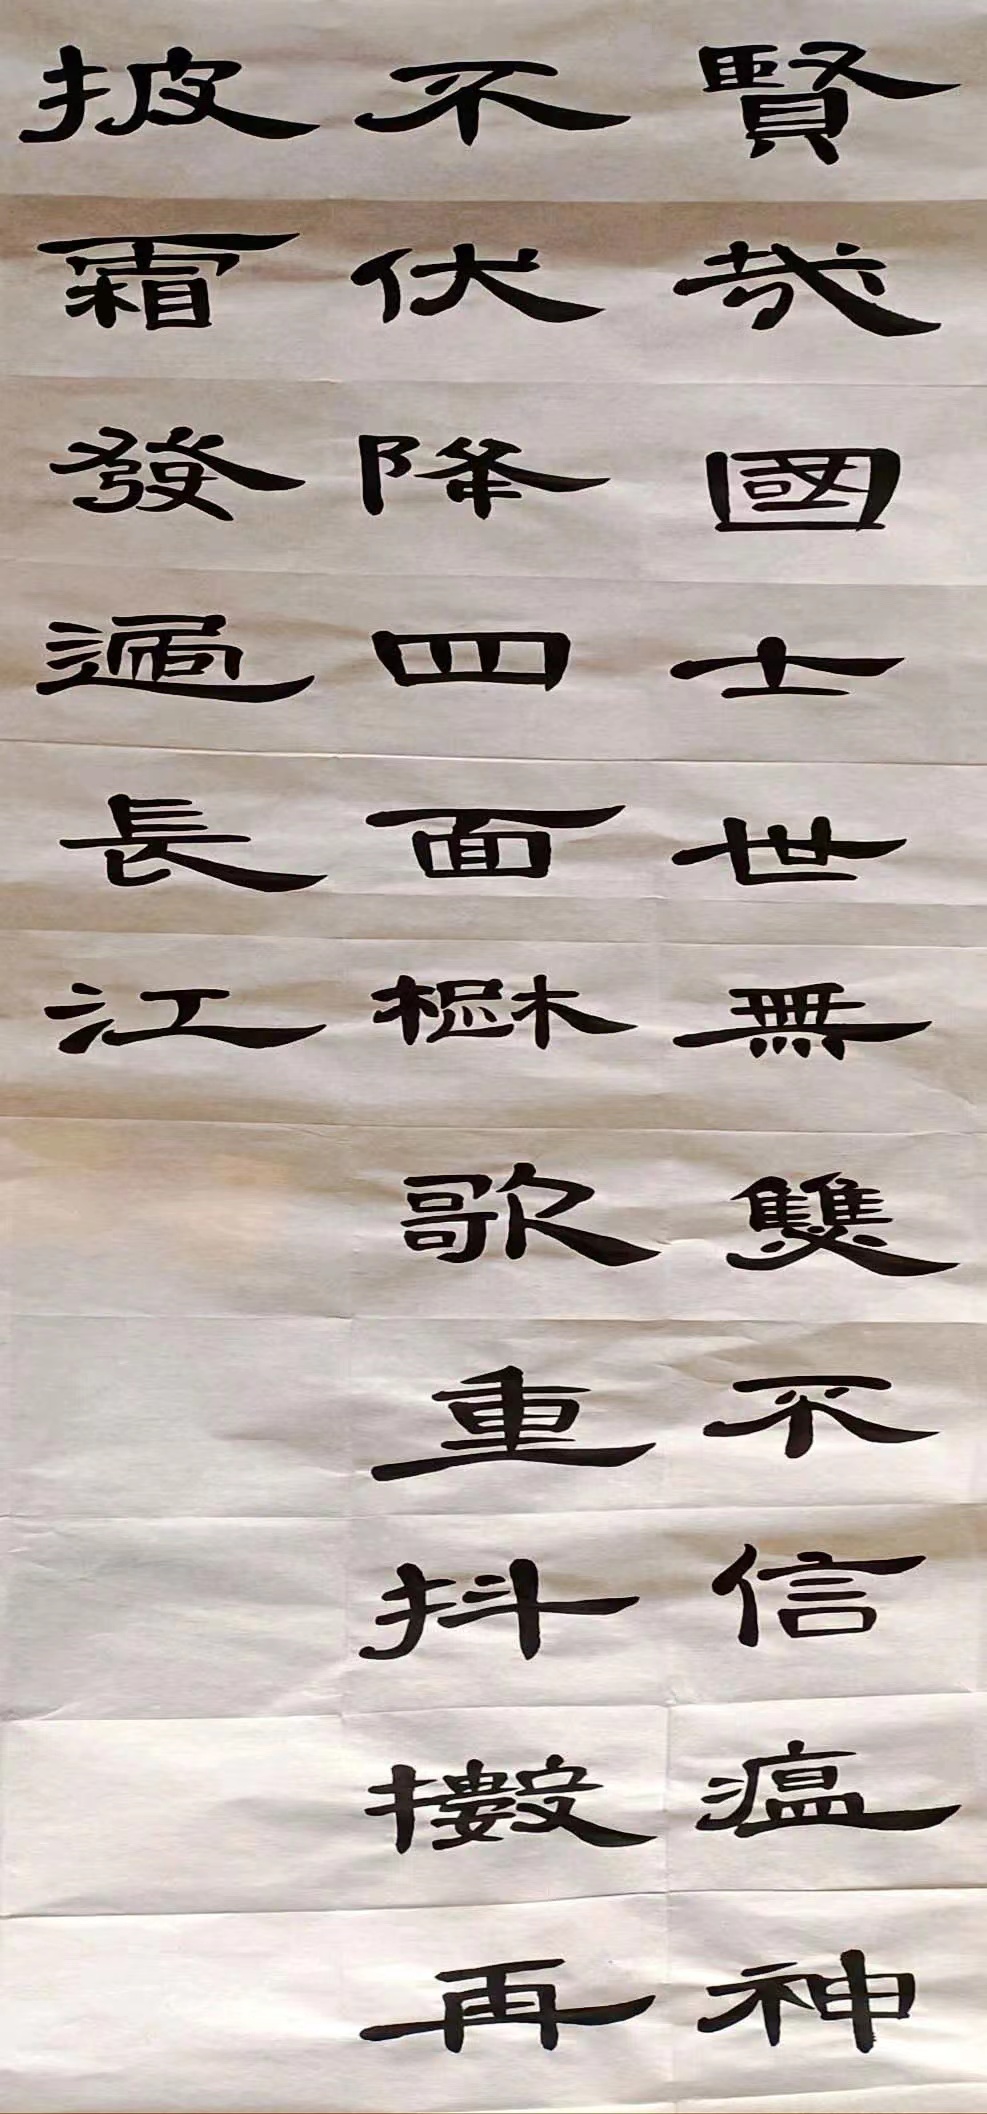 賢哉國士世無雙不信瘟神
不伏降四面楚歌重抖擻再
披霜發遍長江